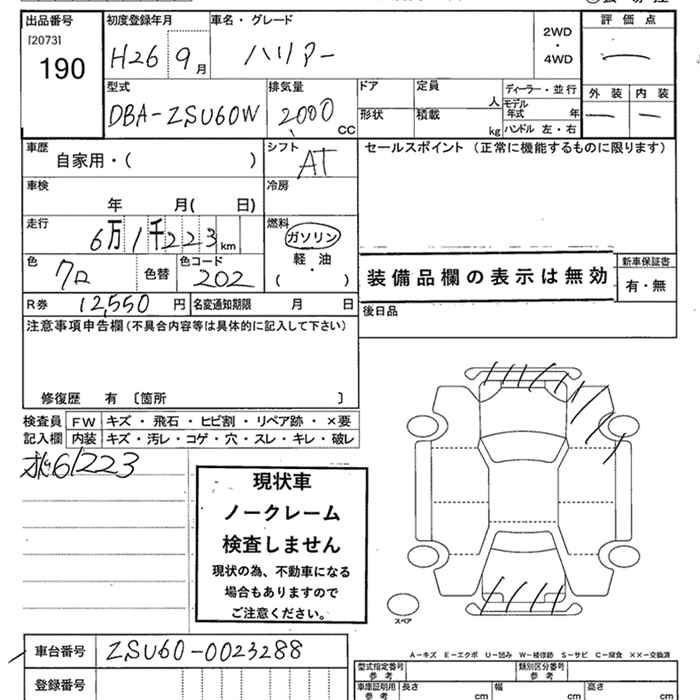 出品番号
[2073]
190
初度登録年月
H26 9月
車名・グレード
ハリアー
2WD
・
4WD
評価点
外装 内装
型式
DBA-ZSU60W
排気量
2000 CC
ドア
形状
定員 人
積載 kg
ディーラー・並行
モデル年式 年
ハンドル 左・右
車歴
自家用・( )
シフト
AT
セールスポイント (正常に機能するものに限ります)
車検
年 月( 日)
冷房
走行
6万1千223km
燃料
ガソリン
軽油
・
( )
色
クロ
色替
色コード
202
装備品欄の表示は無効
新車保証書
有・無
R券 12,550円
名変通知期限 月 日
後日品
注意事項申告欄(不具合内容等は具体的に記入して下さい)
修復歴 有 〔箇所 〕
検査員
記入欄
FW キズ・飛石・ヒビ割・リペア跡・×要
内装 キズ・汚レ・コゲ・穴・スレ・キレ・破レ
61223
現状車
ノークレーム
検査しません
現状の為、不動車になる
場合もありますので
ご注意ください。
スペア
A−キズ E−エクボ U−凹み W−補修跡 S−サビ C−腐食 ××−交換済
車台番号 ZSU60-0023288
登録番号
型式指定番号
参考
類別区分番号
参考
車庫証明用
参考
長さ cm
幅 cm
高さ cm